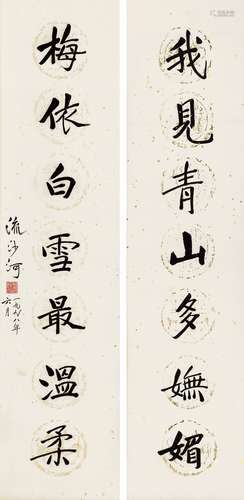 我見青山多嫵媚
梅依白雪最溫柔
流沙河
一九九八年
六月